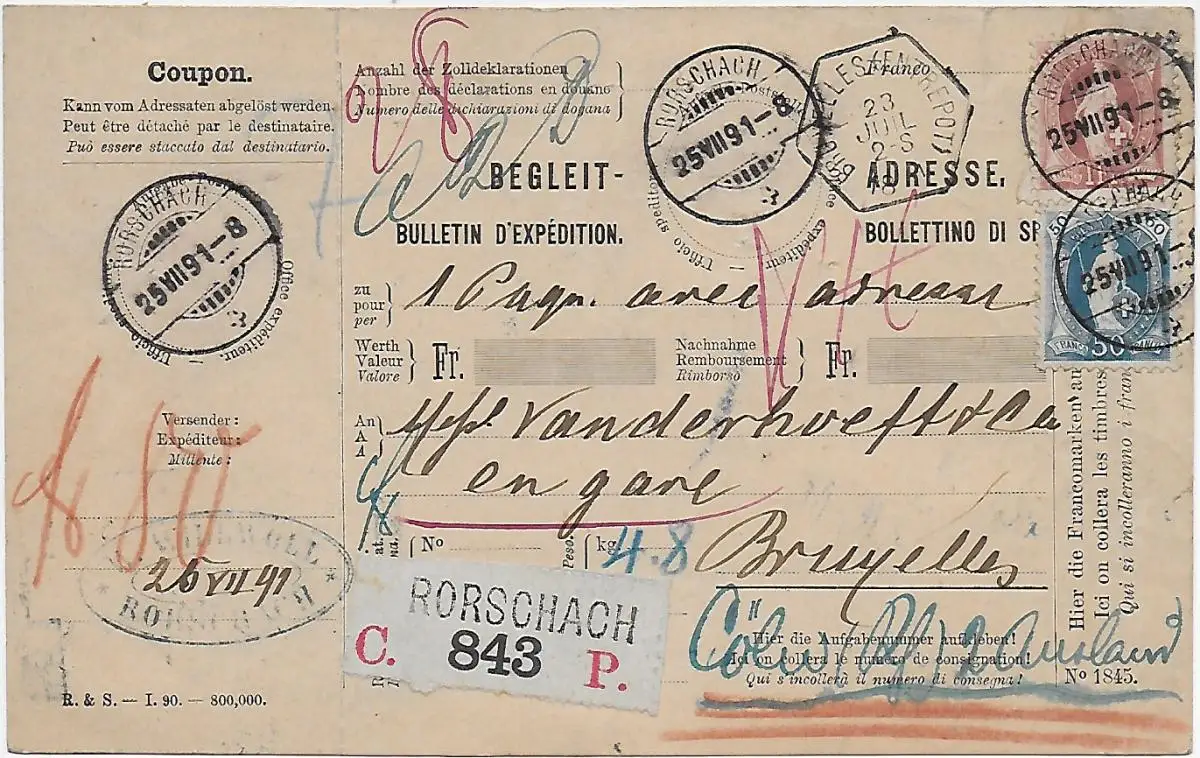 Coupon.
Kann vom Adressaten abgelöst werden.
Peut être détaché par le destinataire.
Può essere staccato dal destinatario.
RORSCHACH
25 VII 91-8
Office expéditeur.
Ufficio speditore
Versender:
Expéditeur:
Mittente:
25 VII 91
R. & S. — I. 90. — 800,000.
Anzahl der Zolldeklarationen
Nombre des déclarations en douane
Numero delle dichiarazioni di dogana
Franco
RORSCHACH
25 VII 91-8
23
JUIL
2-S
BEGLEIT-ADRESSE.
BULLETIN D'EXPÉDITION.
BOLLETTINO DI SP
RORSCHACH
25 VII 91-8
25 VII 91-8
50 50
FRANCO 50 FRANCO
zu
pour
per
1 Paqu. avec adresse
Werth
Valeur
Valore
Fr.
Nachnahme
Remboursement
Rimborso
Fr.
An
A
A
Vanderhoeft & Co
en gare
Bruxelles
No
Peso.
kg
4.8
RORSCHACH
C. 843 P.
Hier die Aufgabenummer aufkleben!
Ici on collera le numéro de consignation!
Qui s'incollerà il numero di consegna!
No 1845.
Hier die Francomarken au
Ici on collera les timbres
Qui si incolleranno i fran